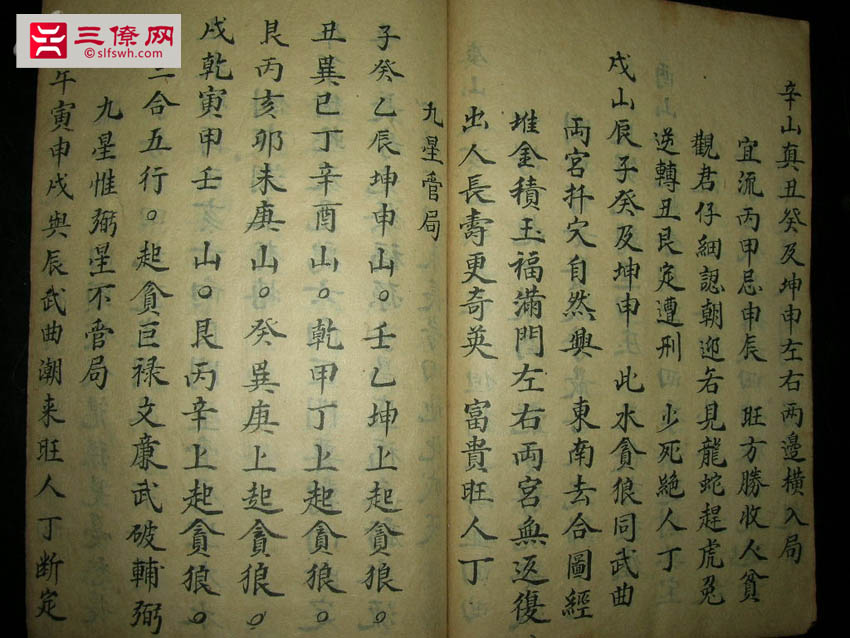 三僚网
slfswh.com
辛山真丑癸及坤申左右两邊横入局
宜流丙甲忌申辰 旺方勝收人貧
觀君仔細認朝迎若見龍蛇趕虎兔
逆轉丑艮定遭刑 少死絕人丁
戌山辰子癸及坤申 此水貪狼同武曲
両宮扦穴自然興 東南去合圖經
堆金積玉福滿門左右両宮無返復
出人長壽更奇英 富貴旺人丁
九星管局
子癸乙辰坤申山。壬乙坤上起貪狼。
丑巽巳丁辛酉山。乾甲丁上起貪狼。
艮丙亥卯未庚山。癸巽庚上起貪狼。
戌乾寅甲壬山。艮丙辛上起貪狼。
三合五行。起貪巨禄文廉武破輔弼
九星惟弼星不管局
午寅申戌與辰武曲潮来旺人丁断定